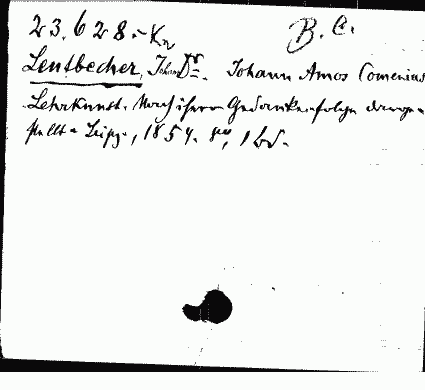 23.628.-Kn B. C.
Leutbecher, Johann Dr. Johann Amos Comenius
Lehrkunst. Nach ihrer Gedankenfolge darge-
stellt. Leipz., 1854. 8°, 1 bd.